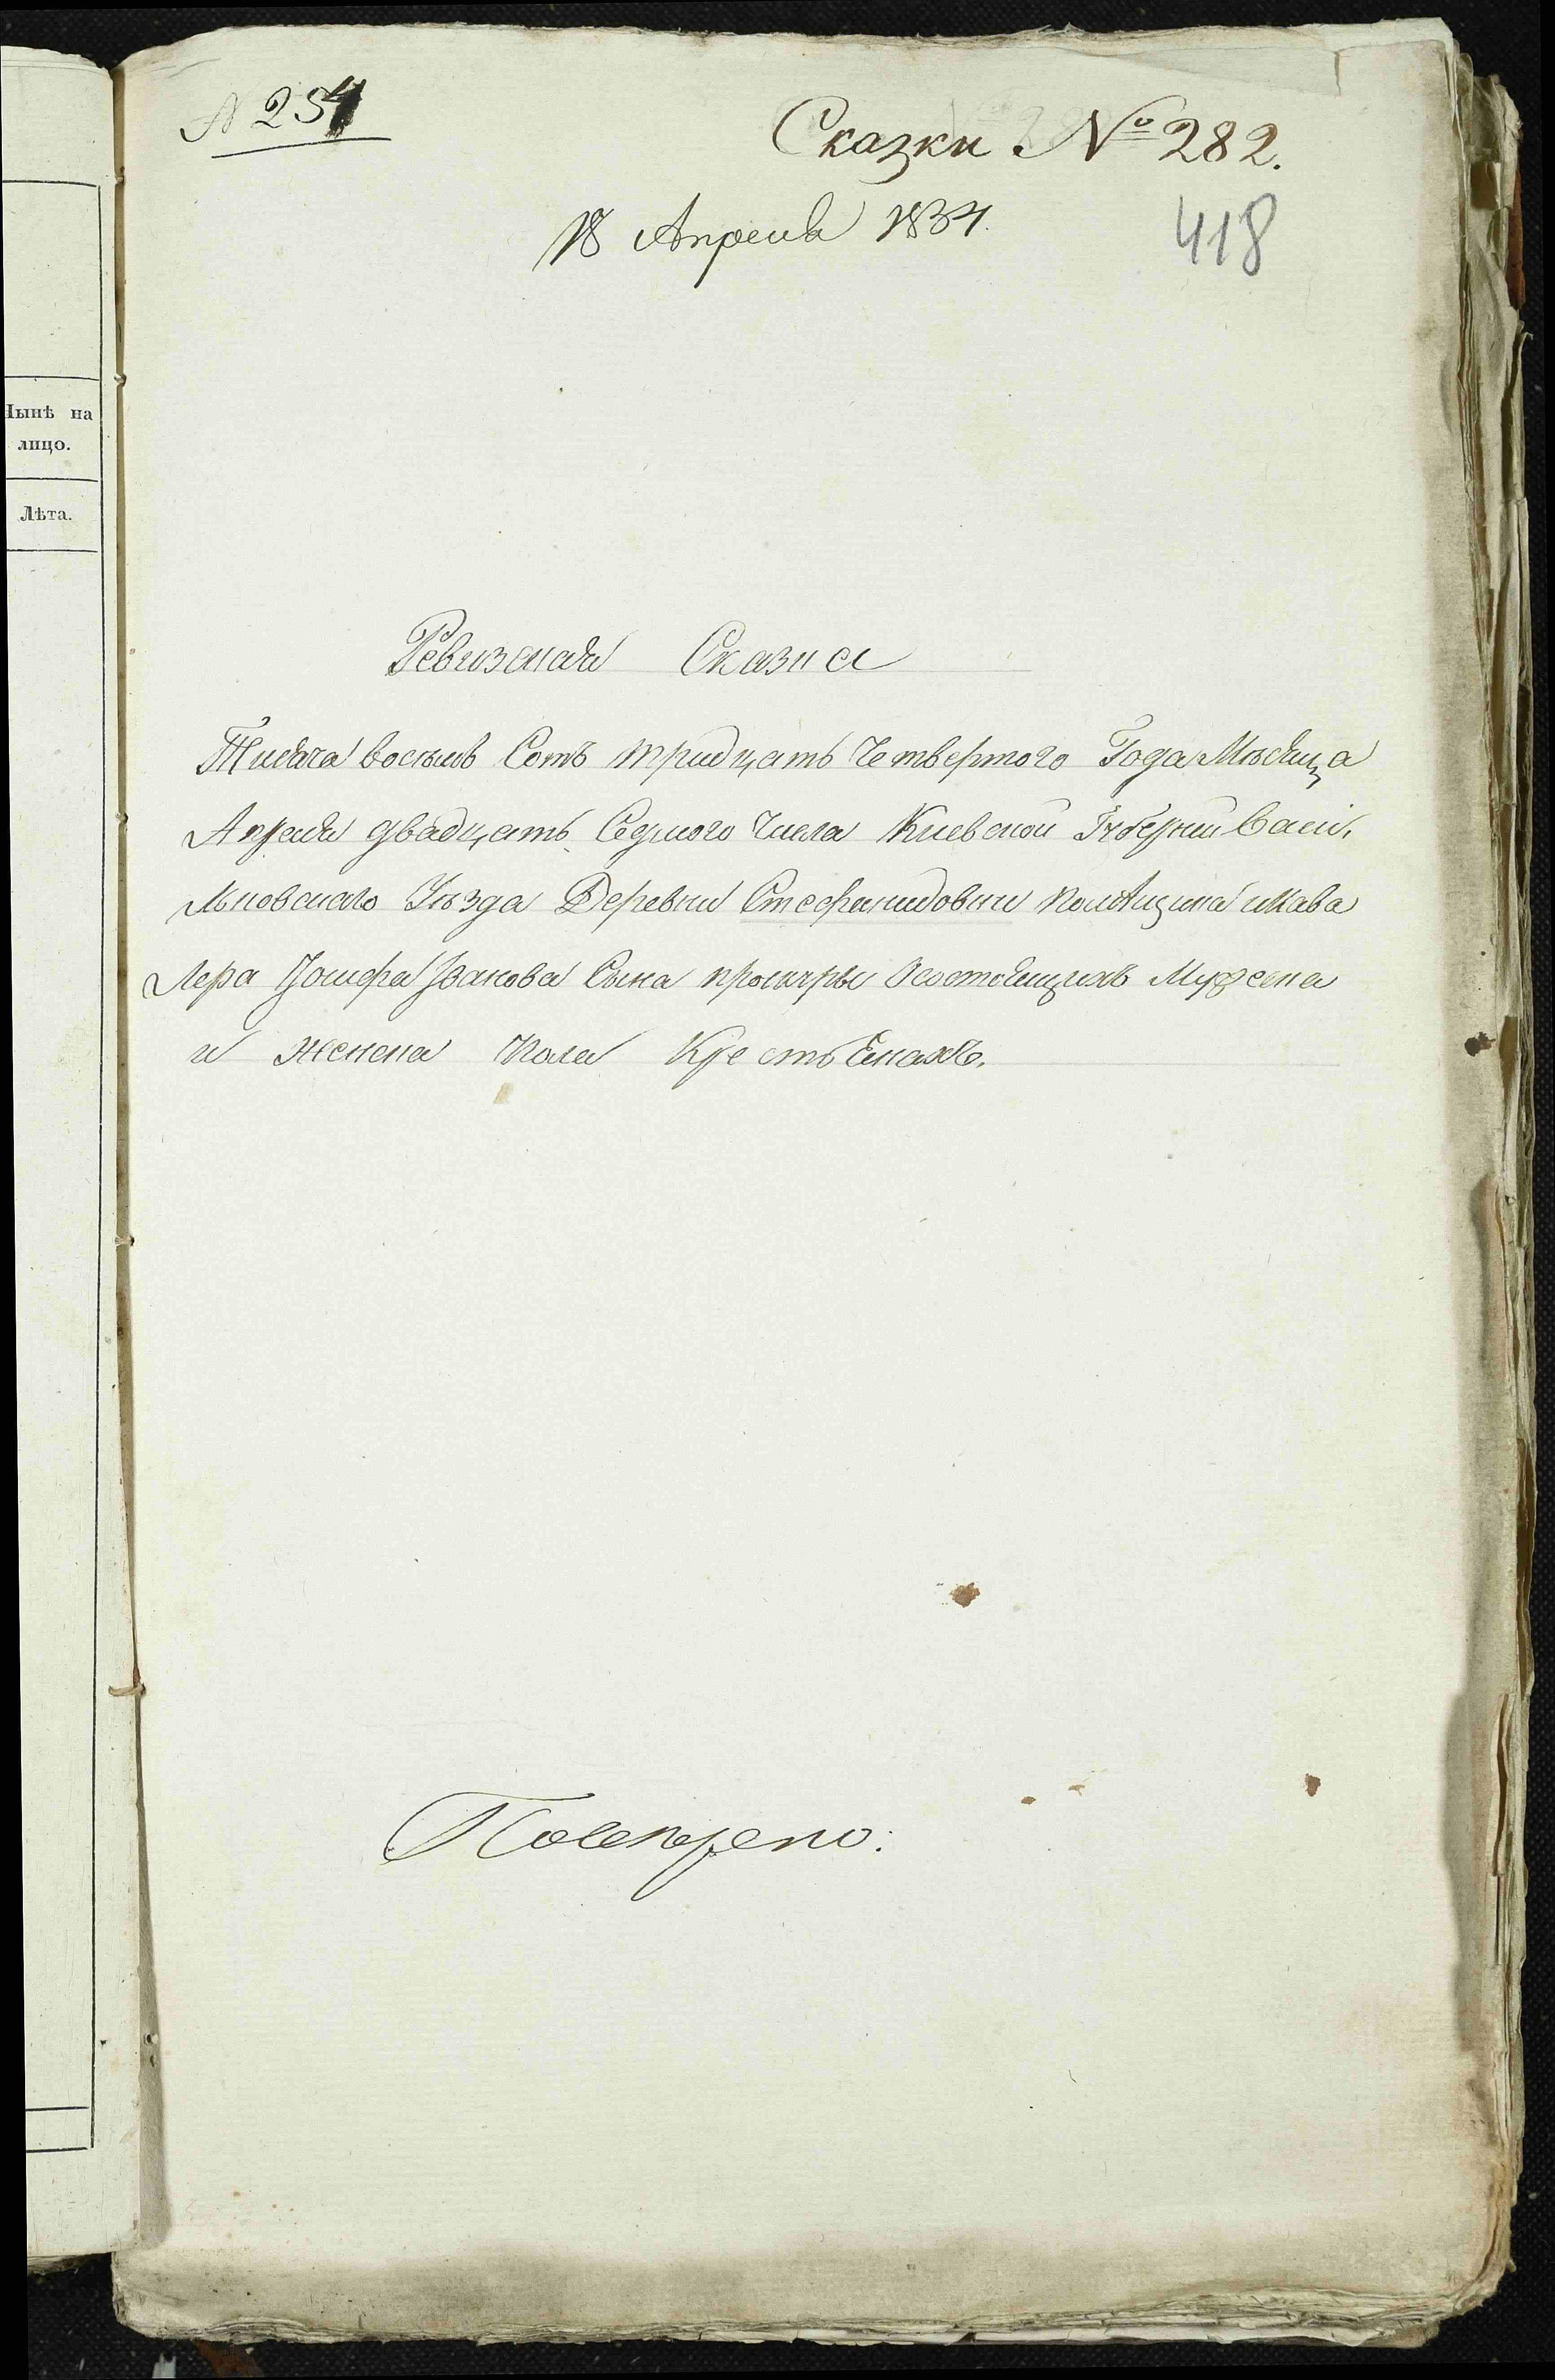 N 254
Сказки № 282.
18 Апреля 1834.
418
Нынѣ на
лицо.
Лѣта.
Ревизская Сказка
Тисяча восемь Сотъ тридцать Четвертого Года Мѣсяца
Апреля двадцать Седмого Числа Киевской Губернии Васи,
льковскаго Уѣзда Деревни Помѣщика и Кава
лера Іосифа Іванова Сына Осостоящихъ Мужеска
и женска пола Крестьянахъ.